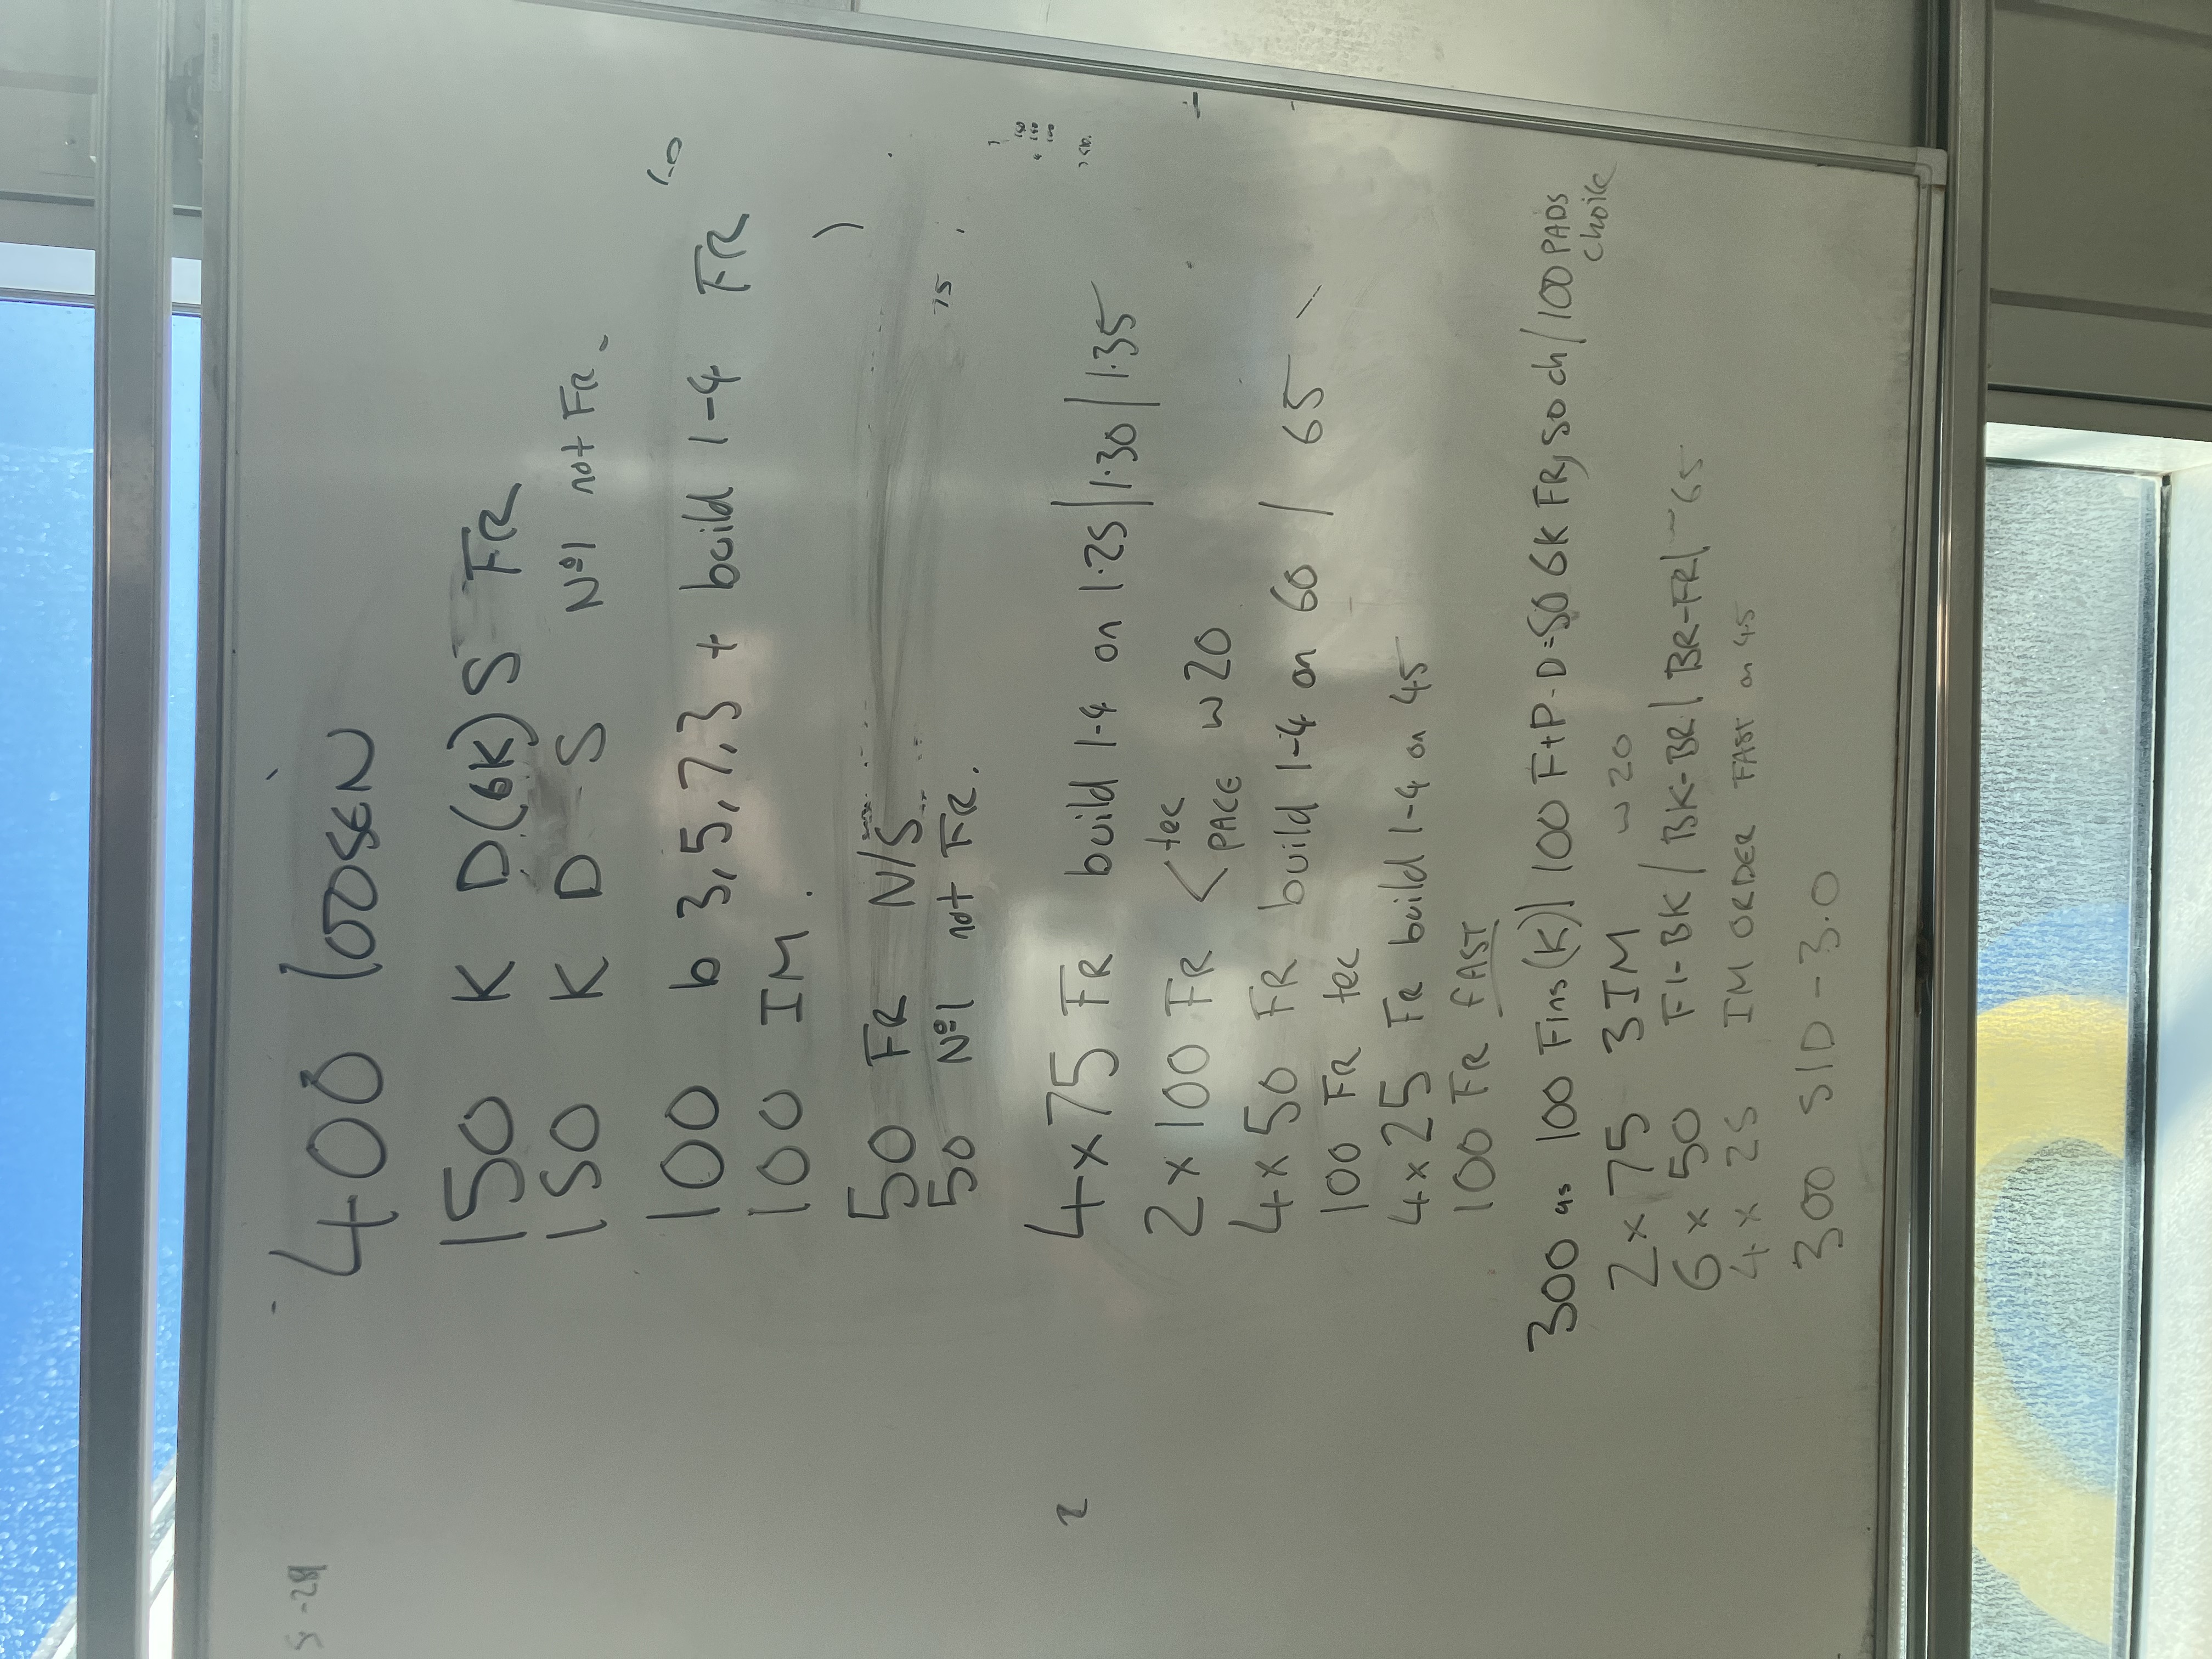 400 loosen
150 K D(6K) S FR
150 K D S Nº1 not FR.
100 b 3,5,7,3 + build 1-4 FR
100 IM.
50 FR N/S
50 Nº1 not FR.
75
4x75 FR build 1-4 on 1.25/1.30/1.35
2x100 FR < tec
PACE w20
4x50 FR build 1-4 on 60 / 65
100 FR tec
4x25 FR build 1-4 on 45
100 FR FAST
300 as 100 Fins (K)/ 100 F+P-D=50 6K FR, 50 ch/100 PADS
choice
2x 75 3IM w20
6x 50 Fl-BK/BK-BR/BR-FR/ 65
4x 25 IM ORDER FAST on 45
300 S/D - 3.0